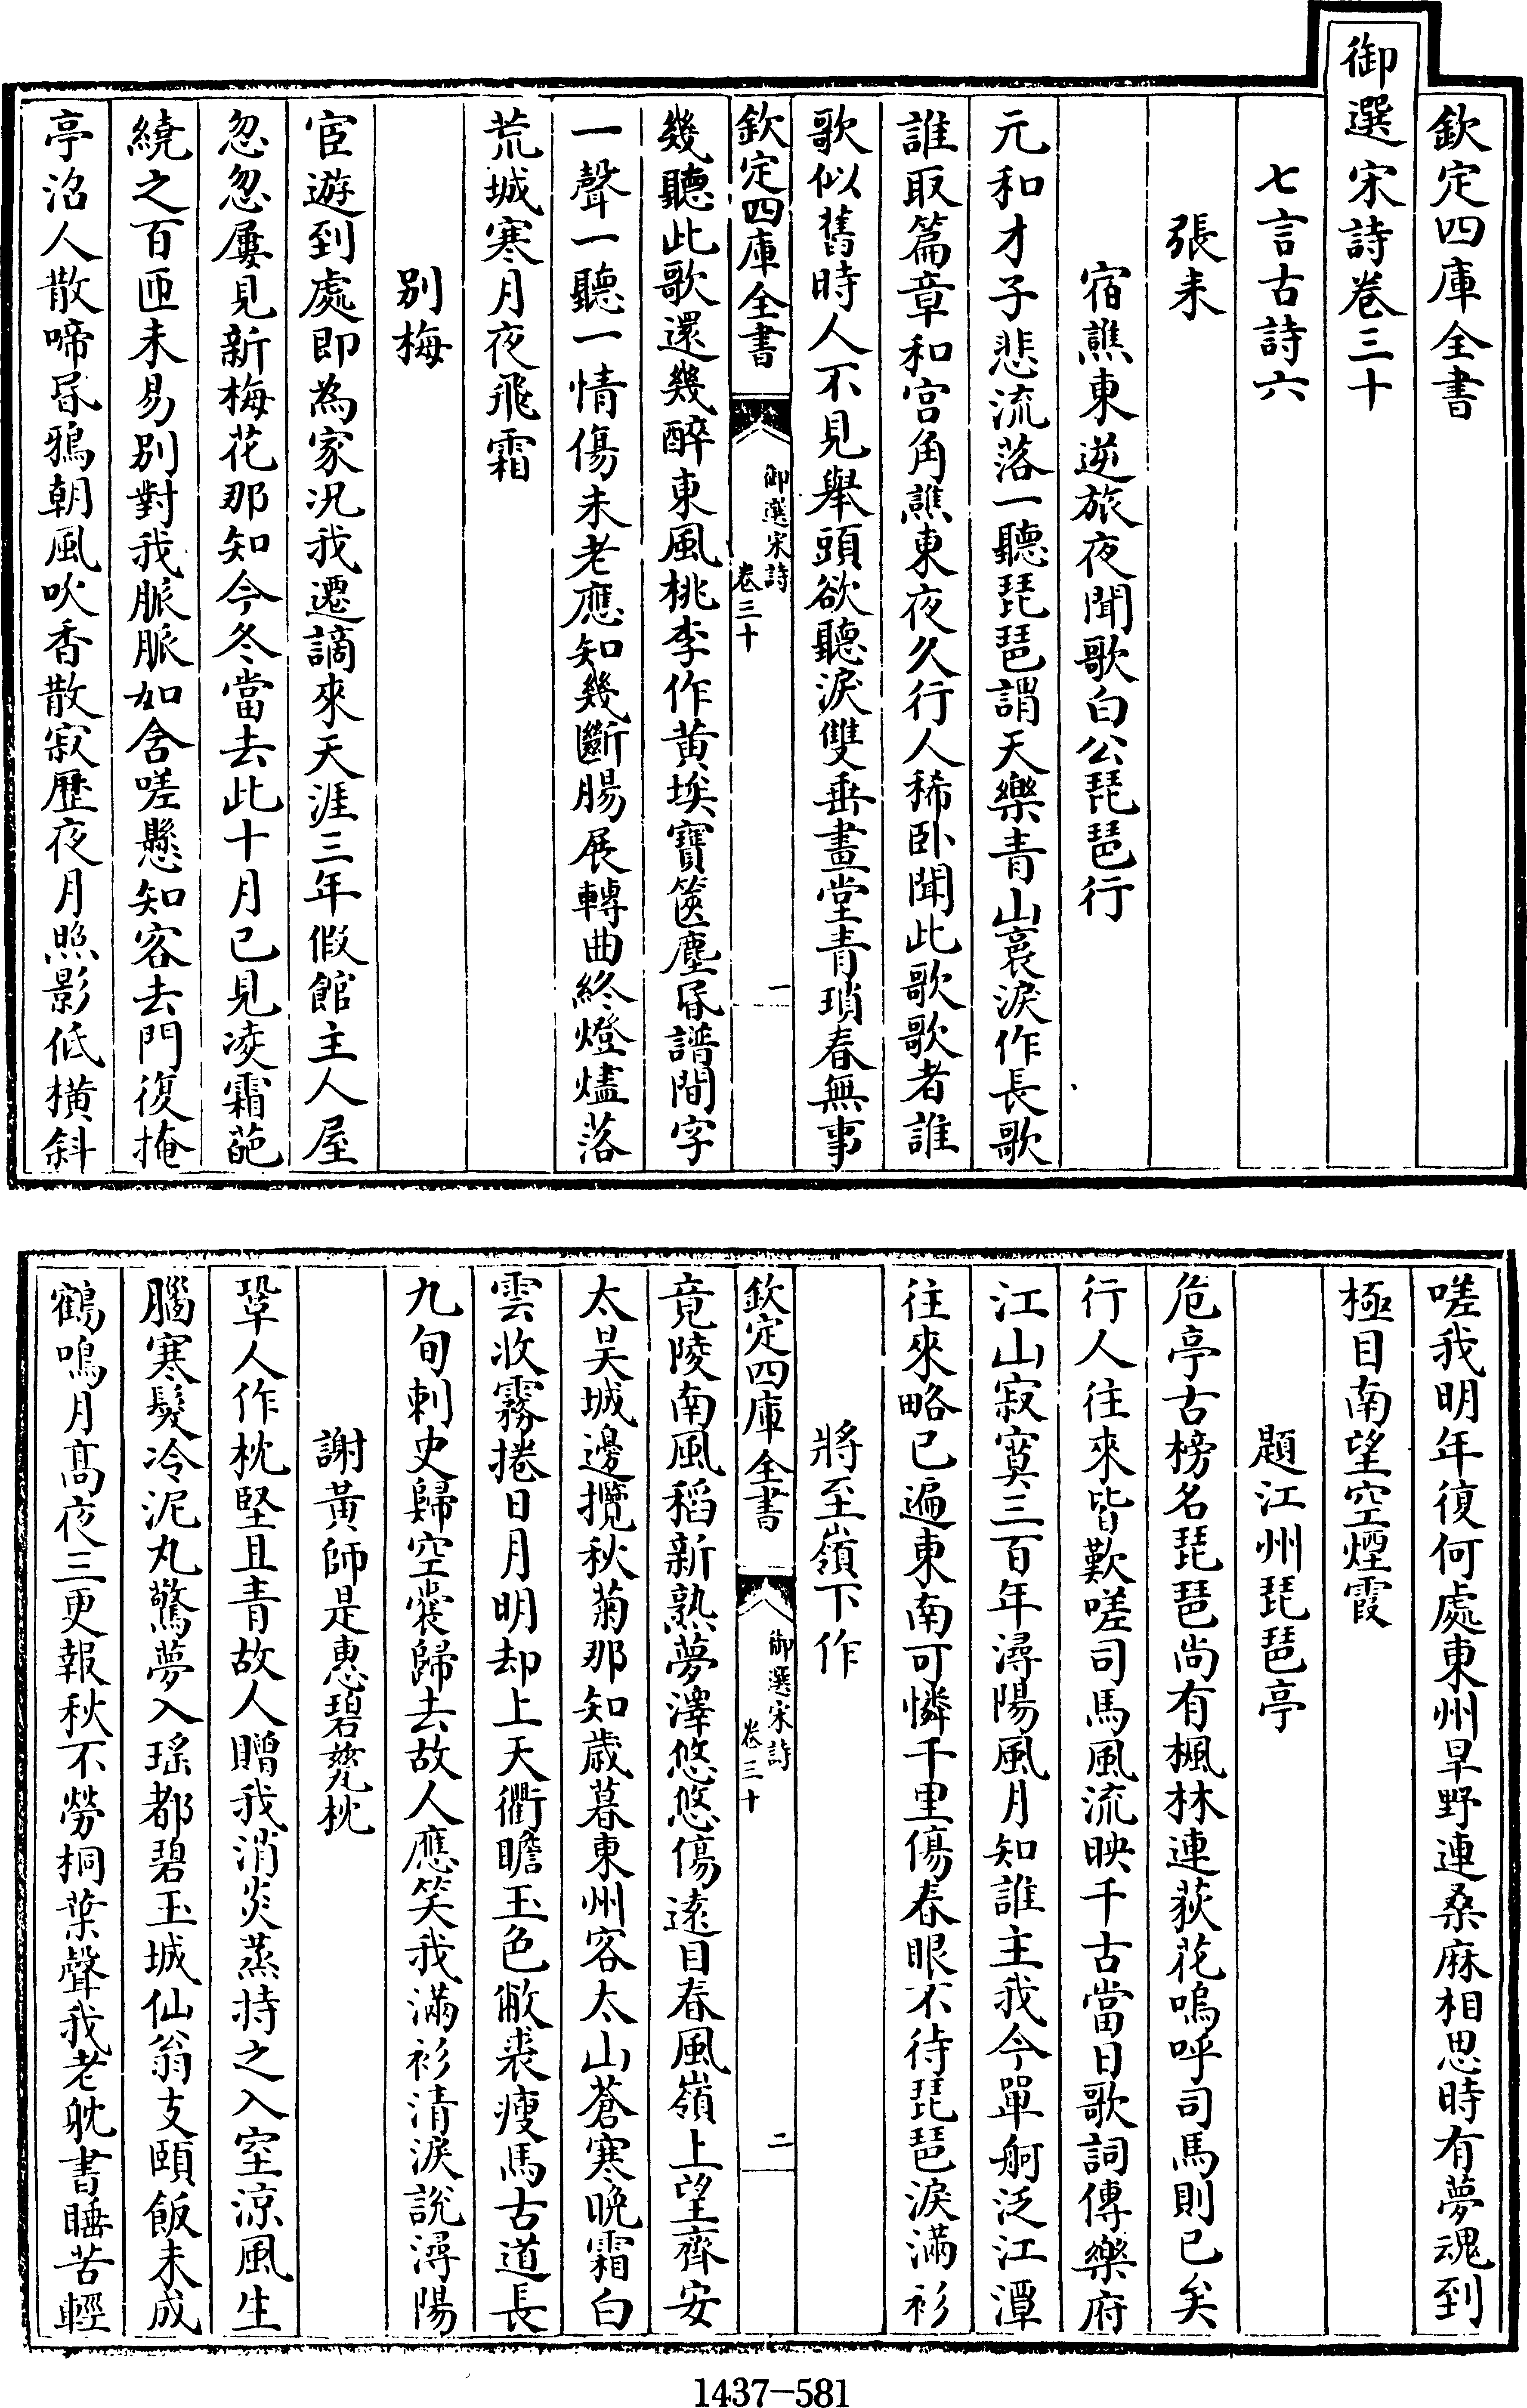 欽定四庫全書
御選宋詩卷三十
七言古詩六
張耒
宿譙東逆旅夜聞歌白公琵琶行
元和才子悲流落一聽琵琶謂天樂青山哀淚作長歌
誰取篇章和宫角譙東夜久行人稀卧聞此歌歌者誰
歌似舊時人不見舉頭欲聽淚雙垂畫堂青瑣春無事
欽定四庫全書
御選宋詩
卷三十
一
幾聽此歌還幾醉東風桃李作黄埃寶篋塵昬譜間字
一聲一聽一情傷未老應知幾斷腸展轉曲終燈燼落
荒城寒月夜飛霜
别梅
宦遊到處即為家况我遷謫來天涯三年假館主人屋
忽忽屢見新梅花那知今冬當去此十月已見凌霜葩
繞之百匝未易别對我脈脈如含嗟懸知客去門復掩
亭沼人散啼昬鴉朝風吹香散寂歷夜月照影低横斜
嗟我明年復何處東州早野連桑麻相思時有夢魂到
極目南望空煙霞
題江州琵琶亭
危亭古榜名琵琶尚有楓林連荻花嗚呼司馬則已矣
行人往來皆歎嗟司馬風流映千古當日歌詞傳樂府
江山寂寞三百年潯陽風月知誰主我今單舸泛江潭
往來略已遍東南可憐千里傷春眼不待琵琶淚滿衫
將至嶺下作
欽定四庫全書
御選宋詩
卷三十
二
竟陵南風稻新熟夢澤悠悠傷遠目春風嶺上望齊安
太昊城邊攬秋菊那知歲暮東州客太山蒼寒晚霜白
雲收霧捲日月明却上天衢瞻玉色敝裘瘦馬古道長
九旬刺史歸空囊歸去故人應笑我滿衫清淚說潯陽
謝黄師是惠碧甆枕
鞏人作枕堅且青故人贈我消炎蒸持之入室涼風生
腦寒髮冷泥丸驚夢入瑤都碧玉城仙翁支頤飯未成
鶴鳴月髙夜三更報秋不勞桐葉聲我老耽書睡苦輕
1437-581